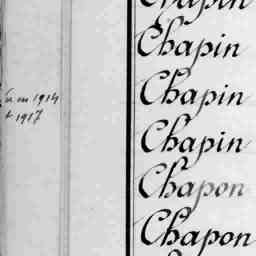 Chapin
Chapin
Chapin
en 1914
& 1917
Chapin
Chapon
Chapon